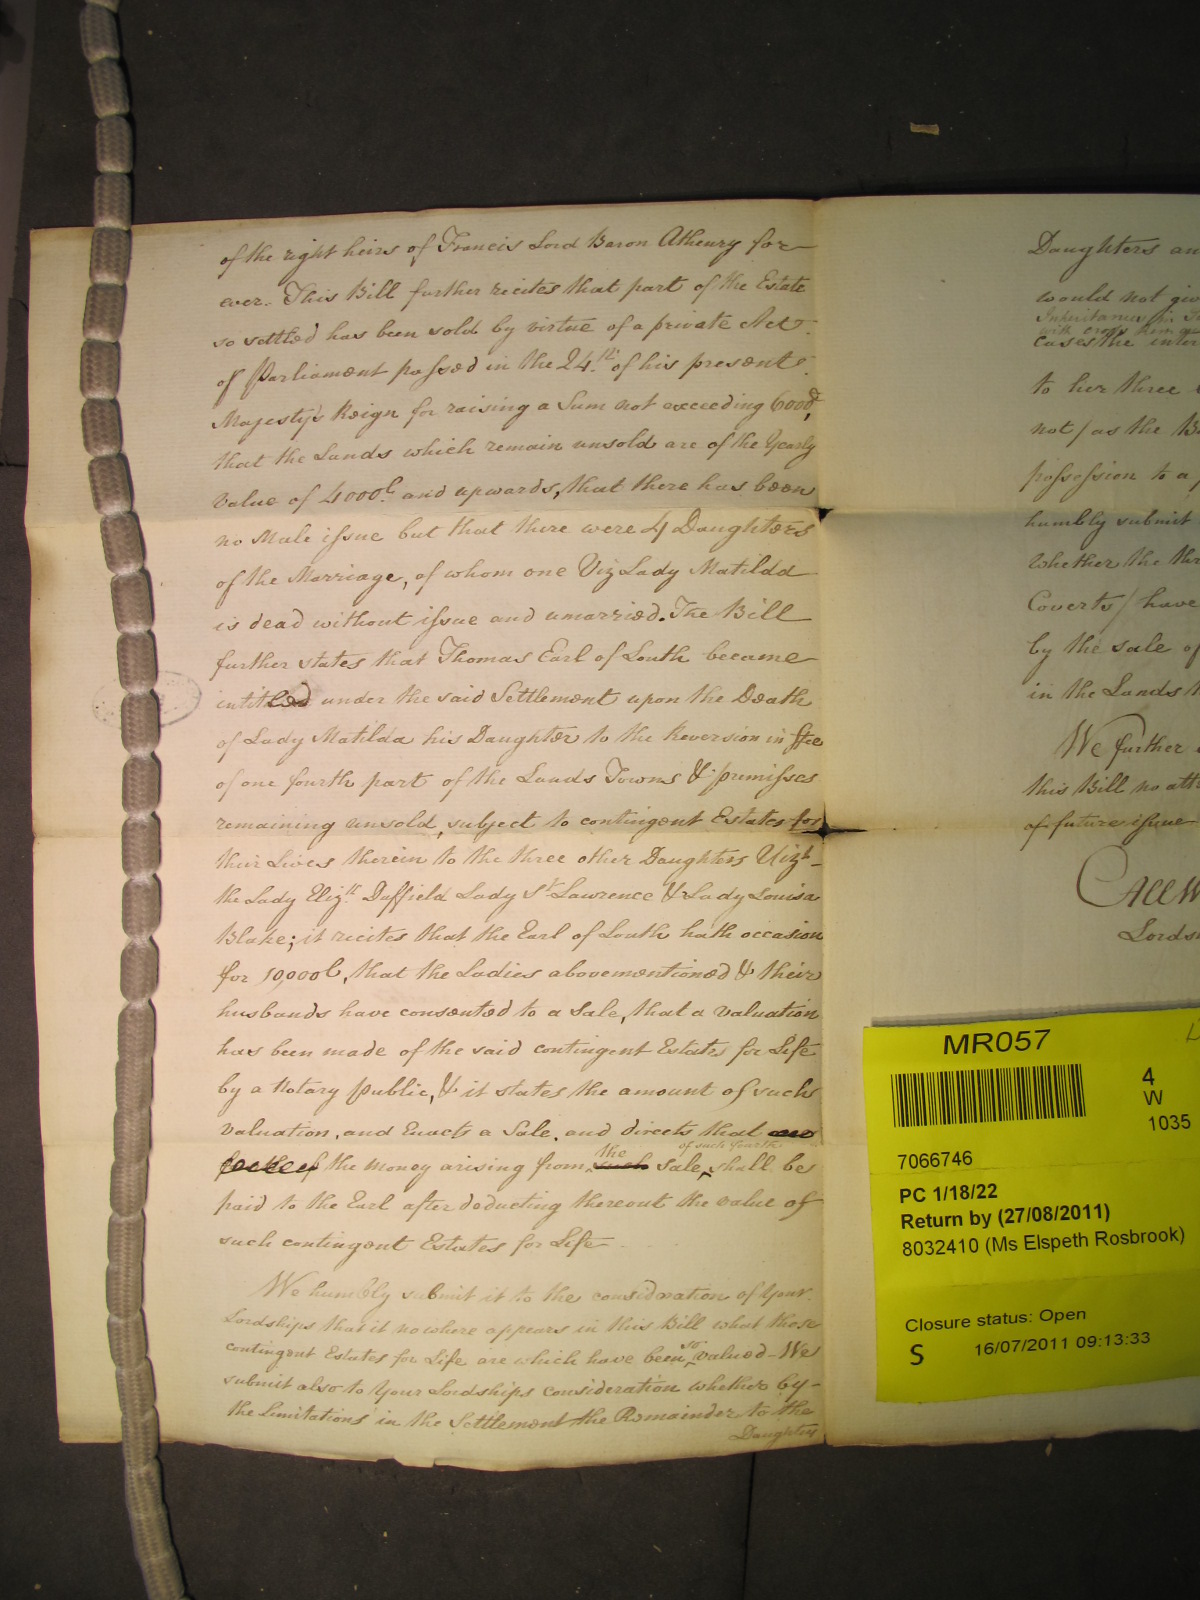 of the right heirs of Francis Lord Baron Athenry for
ever. This Bill further recites that part of the Estate
so settled has been sold by virtue of a private Act
of Parliament passed in the 24.th of his present
Majesty's Reign for raising a Sum not exceeding 6000£,
that the Lands which remain unsold are of the Yearly
value of 4000£ and upwards, that there has been
no Male issue but that there were 4 Daughters
of the Marriage, of whom one Viz Lady Matilda
is dead without issue and unmarried. The Bill
further states that Thomas Earl of Louth became
intitled under the said Settlement upon the Death
of Lady Matilda his Daughter to the Reversion in ffee
of one fourth part of the Lands Towns & premisses
remaining unsold, subject to contingent Estates for
their Lives therein to the three other Daughters Vizt
the Lady Elizth Duffield Lady St Lawrence & Lady Louisa
Blake; it recites that the Earl of Louth hath occasion
for 10,000£, that the Ladies abovementioned & their
husbands have consented to a Sale, that a valuation
has been made of the said contingent Estates for Life
by a Notary public, & it states the amount of such
valuation, and Enacts a Sale, and directs that
of such fourth
the money arising from the such Sale, shall be
paid to the Earl after deducting thereout the value of
such contingent Estates for Life
We humbly submit it to the consideration of Your
Lordships that it no where appears in this Bill what those
contingent Estates for Life are which have been so valued - We
submit also to Your Lordships consideration whether by
the Limitations in the Settlement the Remainder to the
Daughters
Daughters an
would not giv
Inheritance in
with cross
cases the inter
to her three
not / as the B
possession to a
humbly submit
Whether the thr
Coverts / have
by the sale of
in the Lands
We further
this Bill no att
of future issue
All W
Lords
MR057
4
W
1035
7066746
PC 1/18/22
Return by (27/08/2011)
8032410 (Ms Elspeth Rosbrook)
Closure status: Open
S 16/07/2011 09:13:33